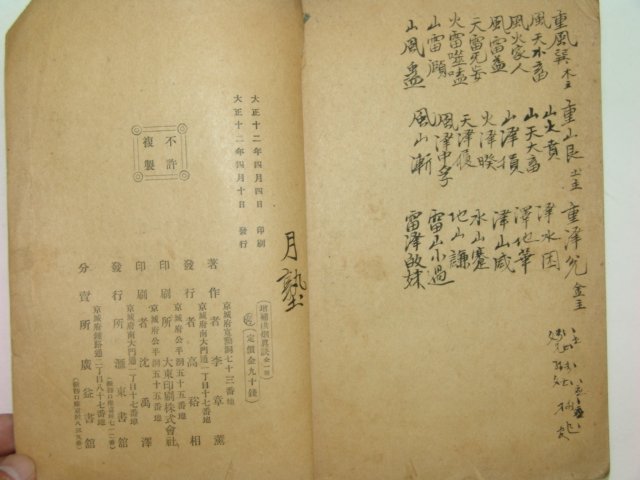 重風巽木主
風天小畜
風火家人
風雷益
天雷无妄
火雷噬嗑
山雷頤
山風蠱
重山艮土主
山火賁
山天大畜
山澤損
火澤睽
天澤履
風澤中孚
風山漸
重澤兌金主
澤水困
澤地萃
澤山咸
水山蹇
地山謙
雷山小過
雷澤歸妹
月塾
大正十二年四月四日 印刷
大正十二年四月十日 發行
不許
複製
定價金九十錢
京城府寬勳洞七十三番地
著作者 李章薰
京城府南大門通一丁目十七番地
發行者 高裕相
京城府公平洞五十五番地
印刷所 大東印刷株式會社
京城府公平洞五十五番地
印刷者 沈禹澤
京城府南大門通一丁目十七番地
發行所 滙東書館
京城府鍾路通二丁目八十七番地
分賣所 廣益書館